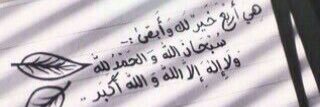 هي أربع خير لك وأبقى :..
سبحان الله والحمد لله
ولا إله إلا الله والله أكبر ..